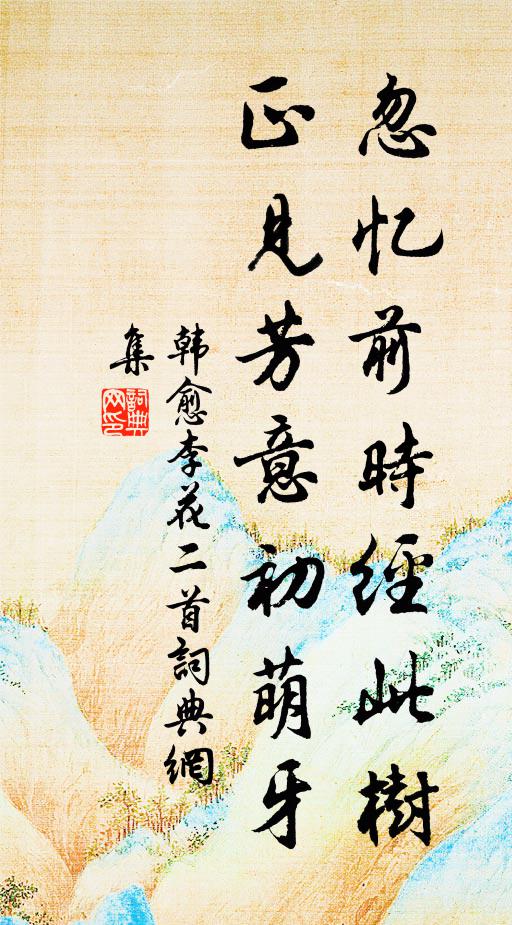 忽忆前時經此樹
正見芳意初萌牙
韩愈李花二首詞典網
集
詞典网印